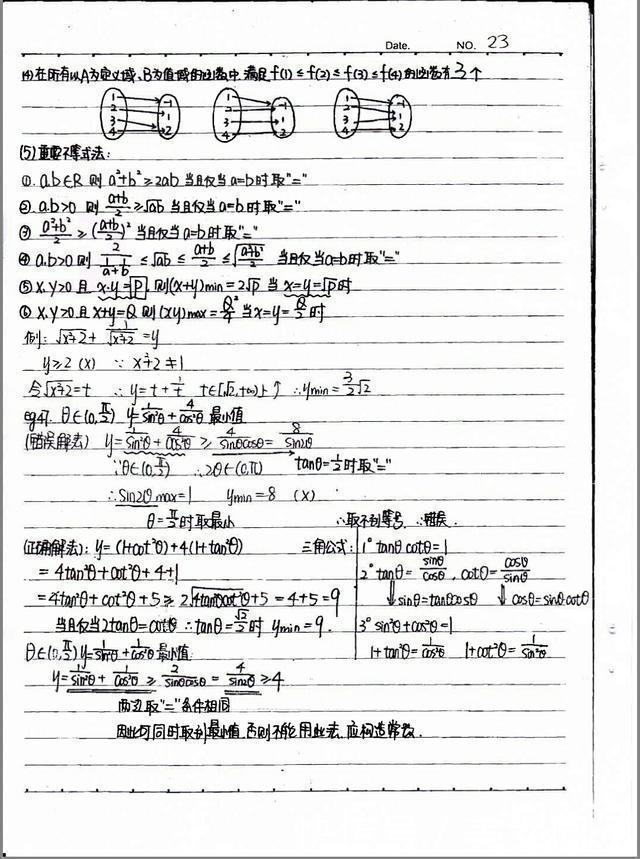 Date. NO. 23
(4) 在所有以A为定义域、B为值域的函数中 满足 f(1) ≤ f(2) ≤ f(3) ≤ f(4) 的函数有3个
1 2 3 4 -1 1 2
1 2 3 4 -1 1 2
1 2 3 4 -1 1 2
(5) 重要不等式法:
① a.b∈R 则 a²+b² ≥ 2ab 当且仅当 a=b 时取"="
② a.b>0 则 (a+b)/2 ≥ √ab 当且仅当 a=b 时取"="
③ (a²+b²)/2 ≥ ((a+b)/2)² 当且仅当 a=b 时取"="
④ a,b>0 则 2/(1/a+1/b) ≤ √ab ≤ (a+b)/2 ≤ √((a²+b²)/2) 当且仅当 a=b 时取"="
⑤ x,y>0 且 x·y=P, 则 (x+y)min = 2√P 当 x=y=√P 时
⑥ x,y>0 且 x+y=Q 则 (xy)max = Q²/4 当 x=y=Q/2 时
例: √(x²+2) + 1/√(x²+2) = y
y≥2 (x) ∵ x²+2≠1
令√(x²+2)=t ∴ y=t+1/t t∈[√2,+∞)上↑ ∴ymin=3/2√2
eg47. θ∈(0,π/2) y=1/sin²θ+4/cos²θ 最小值
(错误解法) y=1/sin²θ+4/cos²θ ≥ 4/(sinθcosθ) = 8/sin2θ
∵θ∈(0,π/2) ∴2θ∈(0,π) tanθ=1/2时取"="
∴sin2θ max=1 ymin=8 (x)
θ=π/2时取最小 ∴取不到等号 ∴错误.
(正确解法): y=(1+cot²θ)+4(1+tan²θ)
=4tan²θ+cot²θ+4+1
=4tan²θ+cot²θ+5 ≥ 2√(4tan²θcot²θ)+5=4+5=9
当且仅当2tanθ=cotθ ∴tanθ=√2/2时 ymin=9.
三角公式: 1° tanθ cotθ=1
2° tanθ=sinθ/cosθ, cotθ=cosθ/sinθ
⇓ sinθ=tanθcosθ ⇓ cosθ=sinθ·cotθ
3° sin²θ+cos²θ=1
1+tan²θ=1/cos²θ 1+cot²θ=1/sin²θ
θ∈(0,π/2) y=1/sin²θ+1/cos²θ 最小值:
y=1/sin²θ+1/cos²θ ≥ 2/(sinθcosθ) = 4/sin2θ ≥4
两边取"="条件相同
因此可同时取到最小值, 否则不能用此法, 应构造常数.